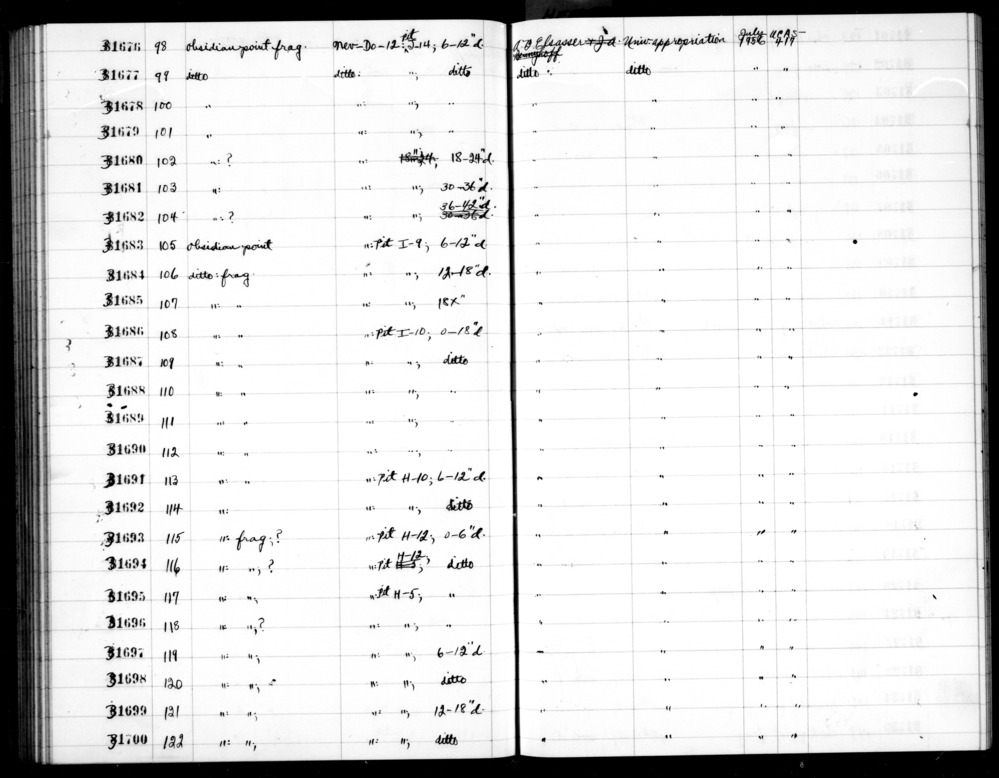 31676 98 obsidian point frag. Nev-Do-12: Pit J-14; 6-12"d. A.B. Elsasser & J.A. Univ. appropriation July 1956 UCAS-419
31677 99 ditto ditto: "; ditto ditto: ditto " "
31678 100 " ": "; " " " " "
31679 101 " ": "; " " " " "
31680 102 ": ? ": 18"-24; 18-24"d. " " " "
31681 103 ": ": "; 30-36"d. " " " "
31682 104 ": ? ": "; 36-42"d. 30-36"d. " " " "
31683 105 obsidian point ": Pit I-9; 6-12"d " " " "
31684 106 ditto: frag. ": "; 12-18"d. " " " "
31685 107 ": " ": "; 18x" " " " "
31686 108 ": " ": Pit I-10; 0-18"d " " " "
31687 109 ": " ": "; ditto " " " "
31688 110 ": " ": "; " " " " "
31689 111 ": " ": "; " " " " "
31690 112 ": " ": "; " " " " "
31691 113 ": " ": Pit H-10; 6-12"d. " " " "
31692 114 ": ": "; ditto " " " "
31693 115 ": frag.; ? ": Pit H-12; 0-6"d. " " " "
31694 116 ": "; ? ": Pit H-12; ditto " " " "
31695 117 ": "; ": Pit H-5; " " " " "
31696 118 ": "; ? ": "; " " " " "
31697 119 ": "; ": "; 6-12"d " " " "
31698 120 ": "; ": "; ditto " " " "
31699 121 ": "; ": "; 12-18"d. " " " "
31700 122 ": "; ": "; ditto " " " "